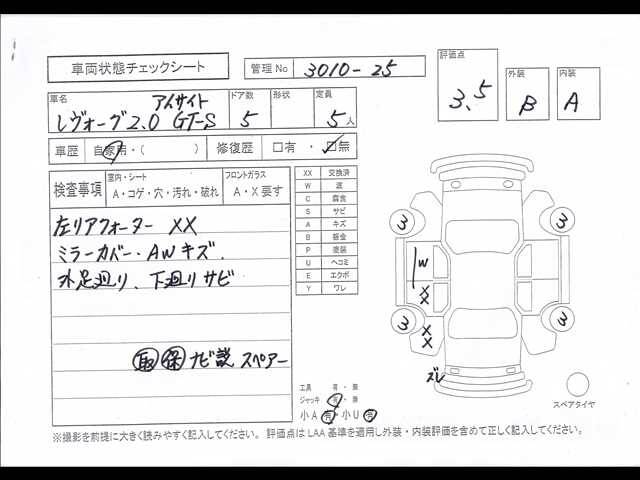 車両状態チェックシート
管理No 3010-25
評価点 3.5
外装 B
内装 A
車名 レヴォーグ2.0 GT-S アイサイト
ドア数 5
形状
定員 5人
車歴 自家用・( )
修復歴 □有・□無
検査事項
室内・シート A・コゲ・穴・汚れ・破れ
フロントガラス A・X要す
左リアクォーター XX
ミラーカバー・AWキズ.
外足廻り、下廻りサビ
取 保 ナビ説 スペアー
XX 交換済
W 波
C 腐食
S サビ
A キズ
B 板金
P 塗装
U ヘコミ
E エクボ
Y ワレ
3
3
W
XX
3
3
XX
ズレ
工具 有・無
ジャッキ 有・無
小A 有・小U 有
スペアタイヤ
※撮影を前提に大きく読みやすく記入してください。評価点はLAA基準を適用し外装・内装評価を含めて正しく記入してください。